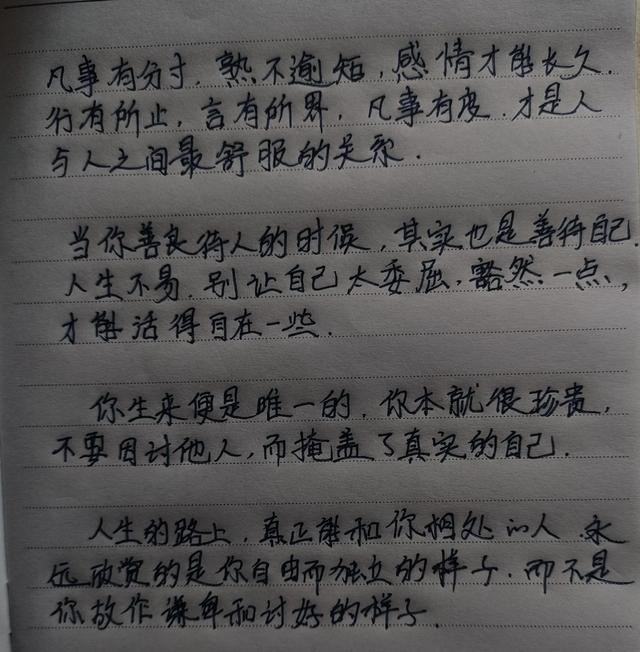 凡事有分寸，熟不逾矩，感情才能长久.
行有所止，言有所界，凡事有度.才是人
与人之间最舒服的关系.
当你善良待人的时候，其实也是善待自己.
人生不易.别让自己太委屈.豁然一点，
才能活得自在一些.
你生来便是唯一的.你本就很珍贵，
不要因讨他人，而掩盖了真实的自己.
人生的路上，真正能和你相处的人.永
远欣赏的是你自由而独立的样子.而不是
你故作谦卑和讨好的样子.